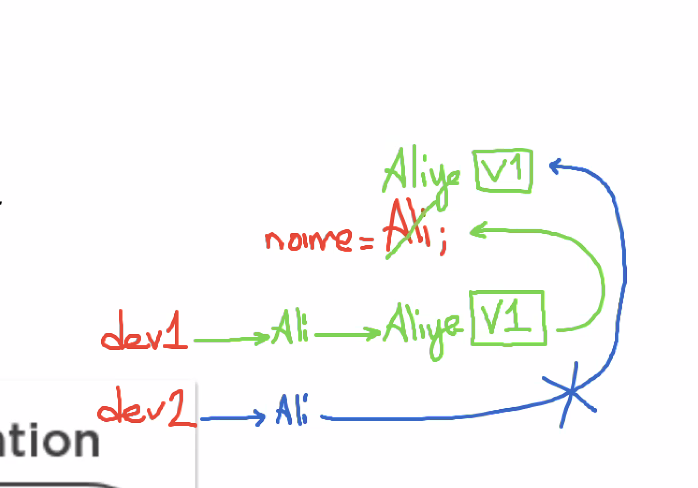 Aliye V1
name = Ali;
dev1 Ali Aliye V1
dev2 Ali
ntion